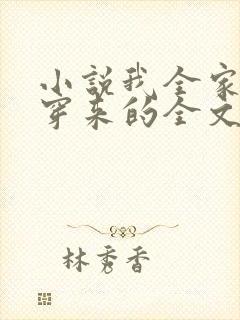 小説我全家
穿来的全文
林秀香